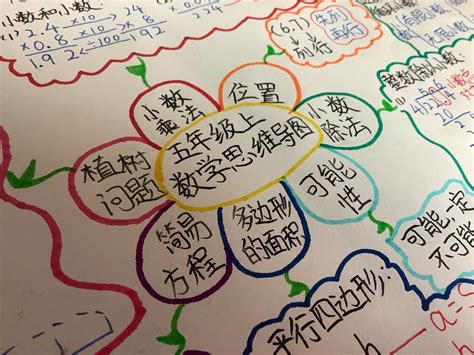 小数和小数:
2.4 ×10→ 24
×0.8 ×10→ × 8
1.92 ←÷100← 192
(6,7)
列 行
先列
再行
整数除小数
小数
乘法
位置
小数
除法
五年级上
数学思维导图
植树
问题
可能
性
简易
方程
多边形
的面积
可能,定
不可能
平行四边形: